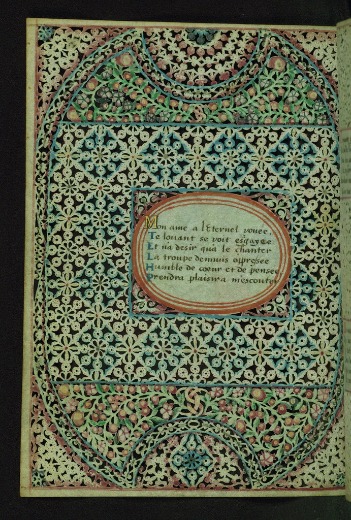 Mon ame a l'Eternel vouee,
Te louant se voit esgayee
Et na desir qua le chanter
La troupe dennuis opressee
Humble de cœur et de pensee
Prendra plaisir a mescouter